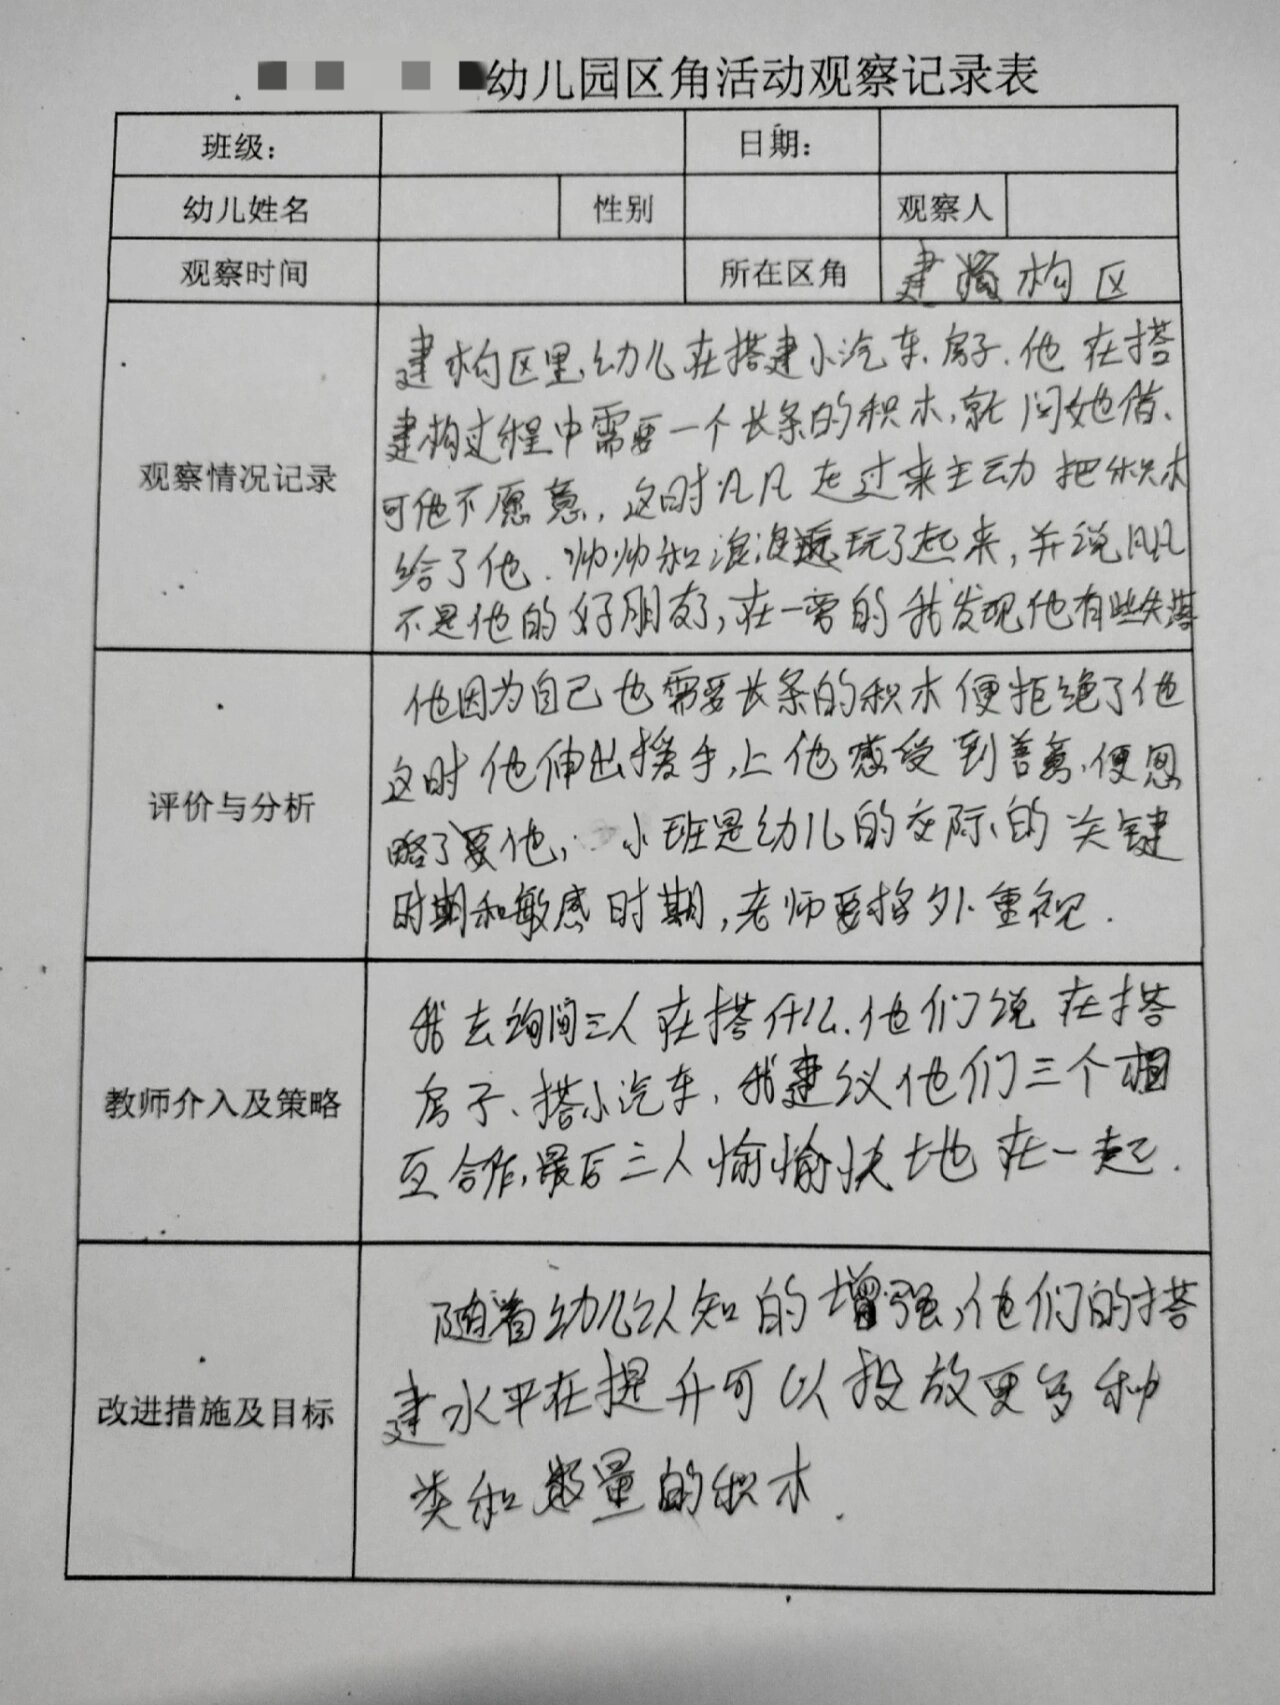 幼儿园区角活动观察记录表
班级： 日期：
幼儿姓名 性别 观察人
观察时间 所在区角 建构区
观察情况记录
建构区里,幼儿在搭建小汽车、房子.他在搭
建构过程中需要一个长条的积木,就问她借、
可他不愿意，这时凡凡走过来主动把积木
给了他.帅帅和浪浪玩了起来,并说凡凡
不是他的好朋友了,在一旁的我发现他有些失落
评价与分析
他因为自己也需要长条的积木便拒绝了他
这时他伸出援手,上他感受到善意,便忽
略了要他,小班是幼儿的交际的关键
时期和敏感时期,老师要格外重视.
教师介入及策略
我去询问三人在搭什么.他们说在搭
房子、搭小汽车,我建议他们三个相
互合作,最后三人愉愉快地在一起.
改进措施及目标
随着幼儿认知的增强,他们的搭
建水平在提升可以投放更多种
类和数量的积木.